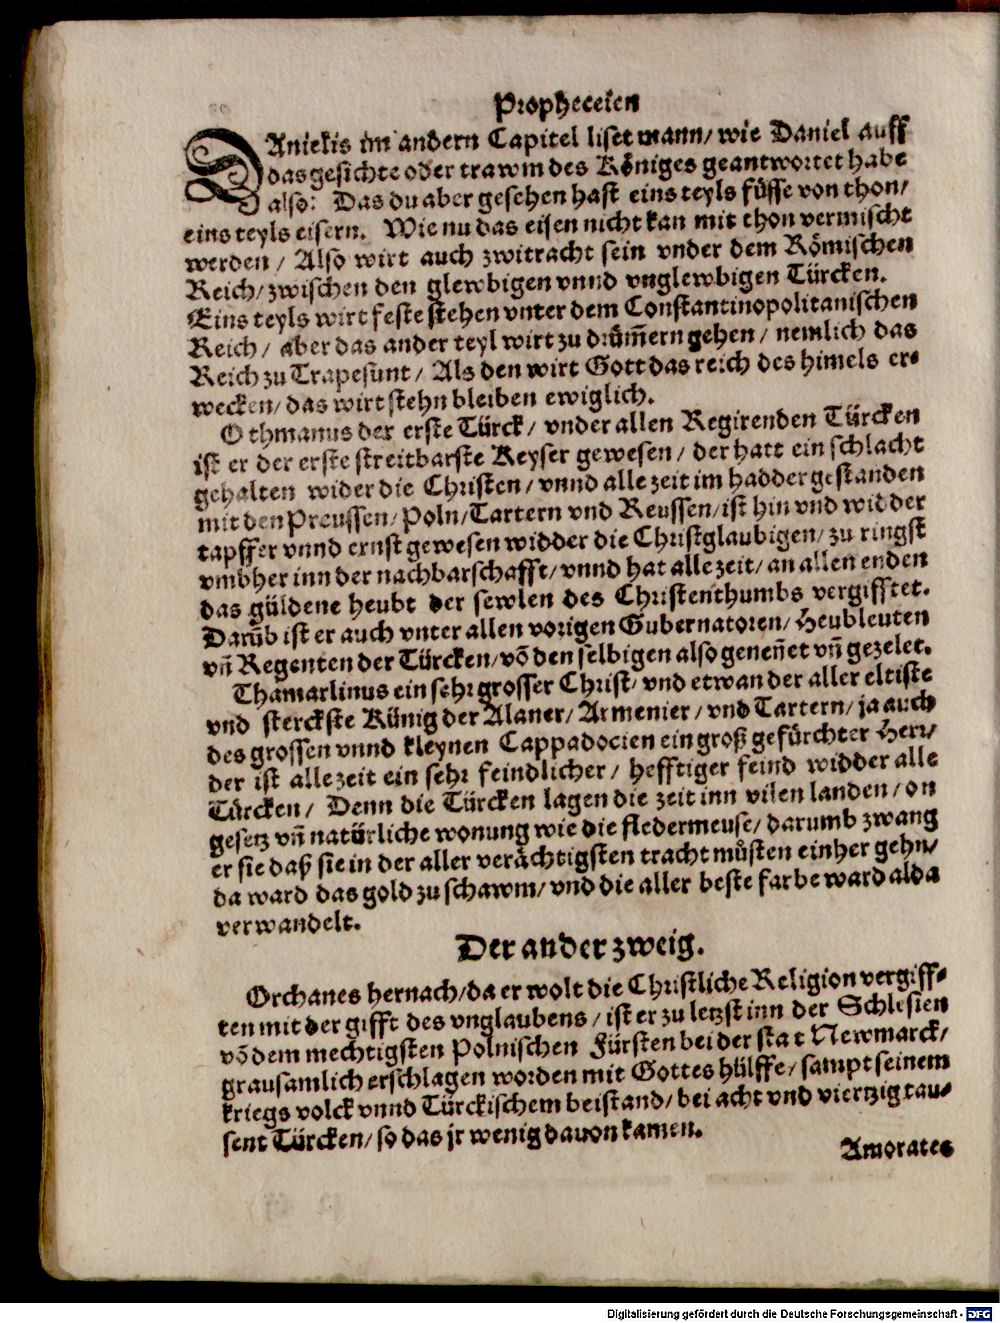 Propheceien
DAnielis im andern Capitel liset mann/ wie Daniel auff
das gesichte oder trawm des Königes geantwortet habe
also: Das du aber gesehen hast eins teyls füsse von thon/
eins teyls eisern. Wie nu das eisen nicht kan mit thon vermischt
werden / Also wirt auch zwitracht sein vnder dem Römischen
Reich/ zwischen den glewbigen vnnd vnglewbigen Türcken.
Eins teyls wirt feste stehen vnter dem Constantinopolitanischen
Reich / aber das ander teyl wirt zu drüm̃ern gehen / nemlich das
Reich zu Trapesunt / Als den wirt Gott das reich des himels er⸗
wecken/ das wirt stehn bleiben ewiglich.
Othmanus der erste Türck/ vnder allen Regirenden Türcken
ist er der erste streitbarste Keyser gewesen / der hatt ein schlacht
gehalten wider die Christen / vnnd alle zeit im hadder gestanden
mit den Preussen/ Poln/ Tartern vnd Reussen/ ist hin vnd widder
tapffer vnnd ernst gewesen widder die Christglaubigen/ zu ringst
vmbher inn der nachbarschafft/ vnnd hat alle zeit/ an allen enden
das güldene heubt der sewlen des Christenthumbs vergifftet.
Darüb ist er auch vnter allen vorigen Gubernatoren/ Heubleuten
vñ Regenten der Türcken/ võ den selbigen also geneñet vñ gezelet.
Thamarlinus ein sehr grosser Christ/ vnd etwan der aller eltiste
vnd sterckste Künig der Alaner/ Armenier / vnd Tartern/ ja auch
des grossen vnnd kleynen Cappadocien ein groß gefürchter Herr/
der ist alle zeit ein sehr feindlicher / hefftiger feind widder alle
Türcken / Denn die Türcken lagen die zeit inn vilen landen / on
gesetz vñ natürliche wonung wie die fledermeuse/ darumb zwang
er sie daß sie in der aller verächtigsten tracht müsten einher gehn/
da ward das gold zu schawm/ vnd die aller beste farbe ward alda
verwandelt.
Der ander zweig.
Orchanes hernach/ da er wolt die Christliche Religion vergiff⸗
ten mit der gifft des vnglaubens / ist er zu letzst inn der Schlesien
võ dem mechtigsten Polnischen Fürsten bei der stat Newmarck/
grausamlich erschlagen worden mit Gottes hülffe/ sampt seinem
kriegs volck vnnd Türckischem beistand/ bei acht vnd viertzig tau⸗
sent Türcken/ so das jr wenig dauon kamen.
Amorates
Digitalisierung gefördert durch die Deutsche Forschungsgemeinschaft - DFG